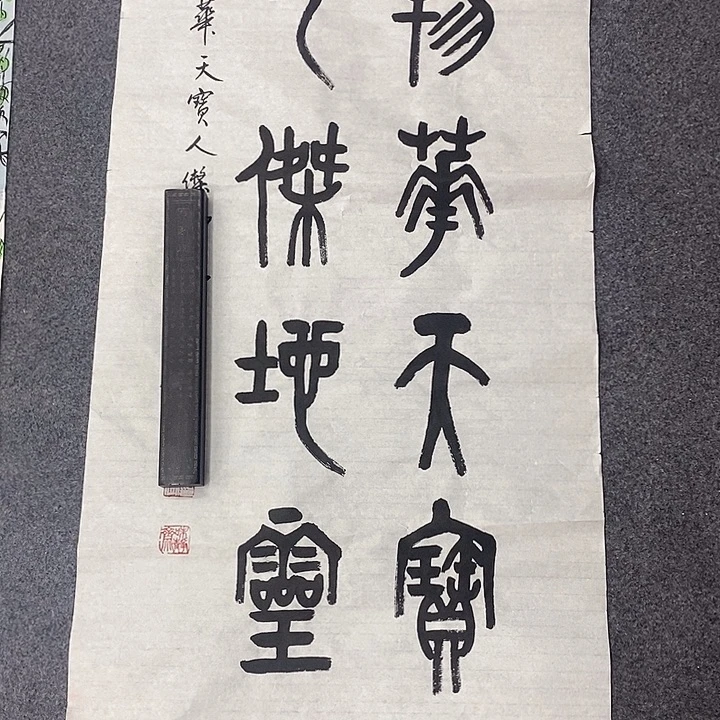 物華天寶
人傑地靈
華天寶人傑